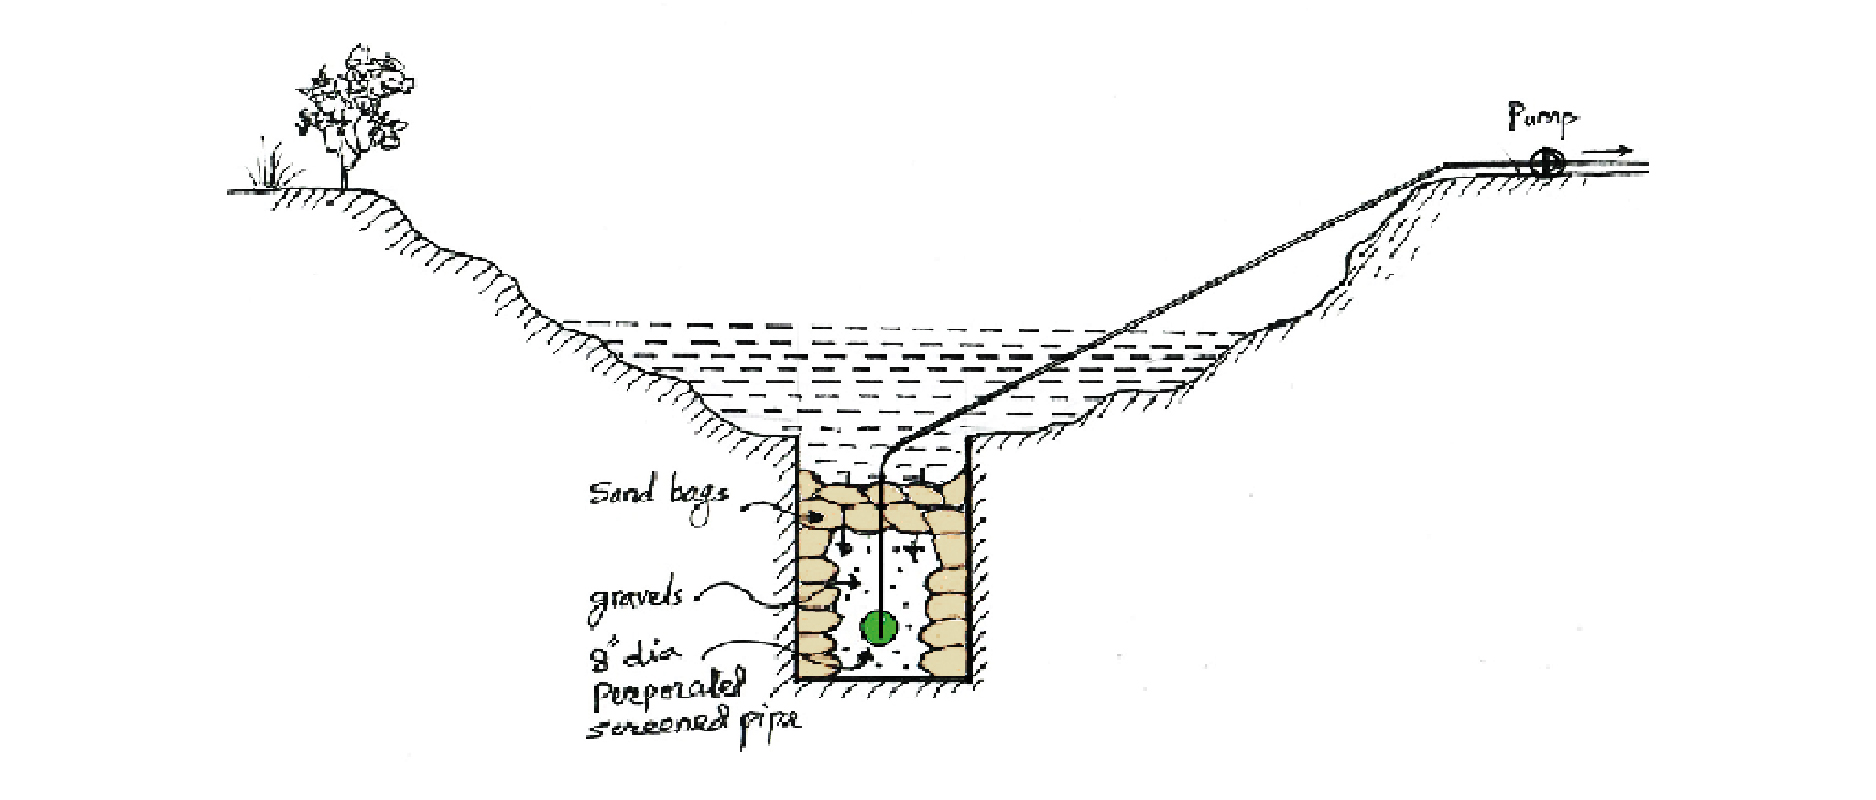 Pump
Sand bags
gravels
8" dia
Perporated
screened pipe